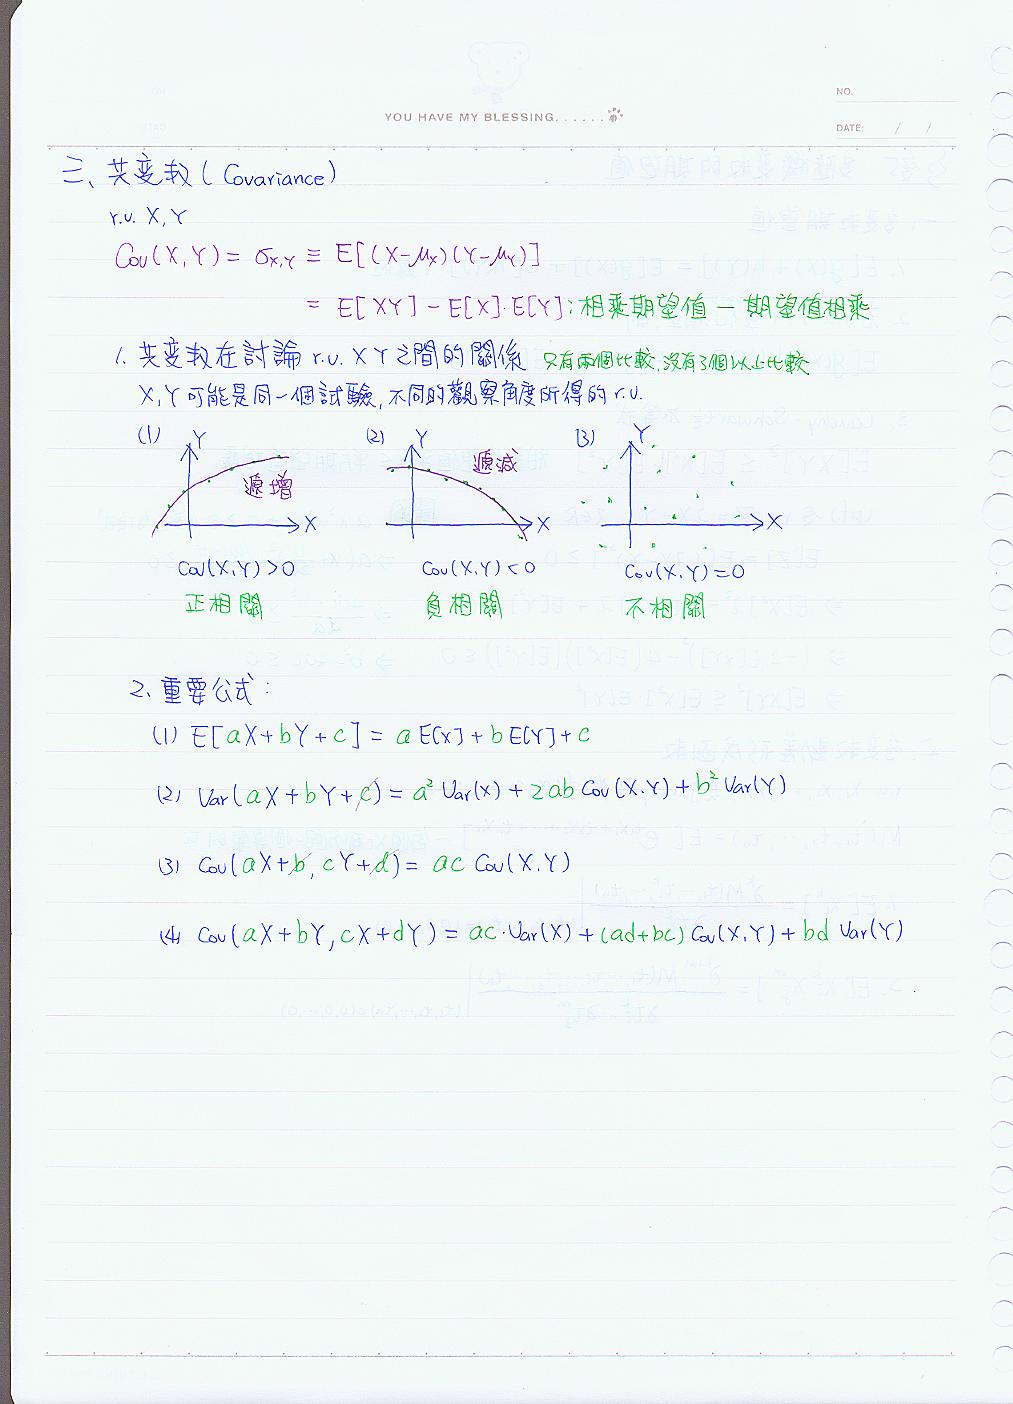 YOU HAVE MY BLESSING......
NO.
DATE: / /
三、共变数(Covariance)
r.v. X,Y
Cov(X,Y) = σX,Y ≡ E[(X-μX)(Y-μY)]
= E[XY] - E[X]·E[Y]:相乘期望值 — 期望值相乘
1. 共变数在討論 r.v. X Y 之間的關係 只有兩個比較,沒有3個以上比較
X,Y可能是同一個試驗,不同的觀察角度所得的r.v.
(1) Y (2) Y (3) Y
遞增 遞減
X X X
Cov(X,Y)>0 Cov(X,Y)<0 Cov(X,Y)=0
正相關 負相關 不相關
2. 重要公式:
(1) E[aX+bY+c] = aE[X]+bE[Y]+c
(2) Var(aX+bY+c) = a² Var(X) + 2ab Cov(X,Y) + b² Var(Y)
(3) Cov(aX+b, cY+d) = ac Cov(X,Y)
(4) Cov(aX+bY, cX+dY) = ac·Var(X) + (ad+bc) Cov(X,Y) + bd Var(Y)